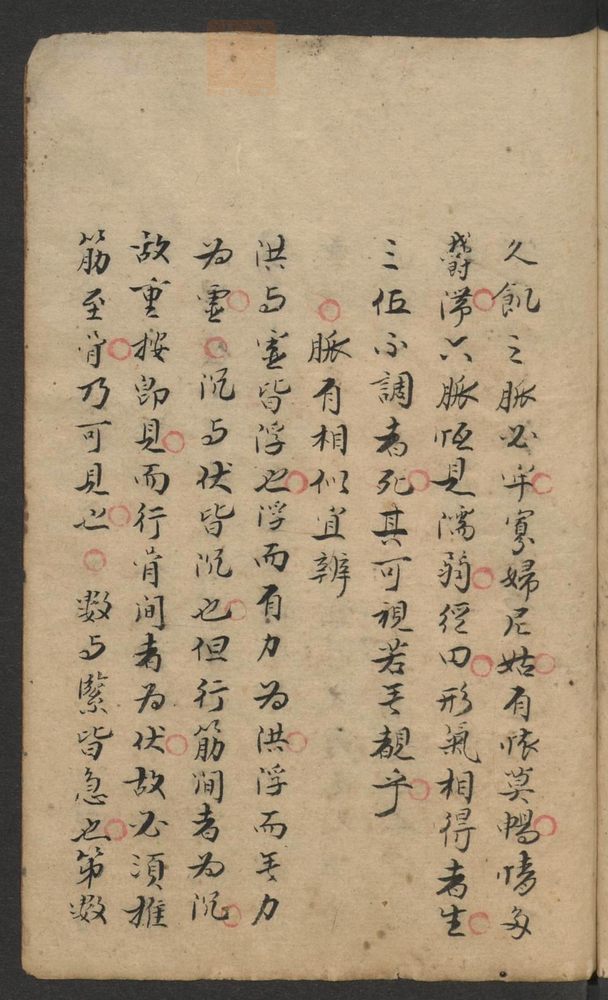 久飢之脈必牢寡婦尼姑有懷莫暢情多
鬱滯六脈恆見濡弱經曰形氣相得者生
三伍不調者死其可視若无覩乎
脈有相似宜辨
洪与虛皆浮也浮而有力为洪浮而无力
为虛沉与伏皆沉也但行筋间者为沉
故重按即見而行骨间者为伏故必須推
筋至骨乃可見也数与緊皆急也第数